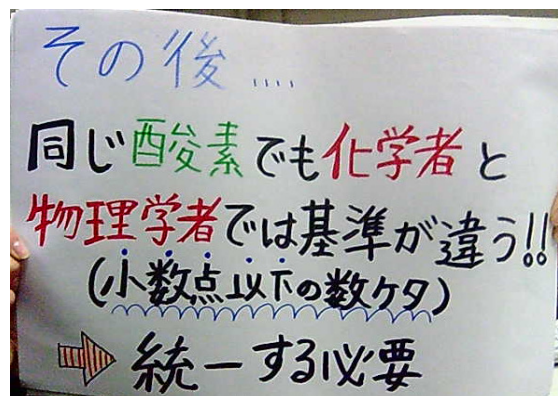 その後....
同じ酸素でも化学者と
物理学者では基準が違う!!
(小数点以下の数ケタ)
⇨統一する必要